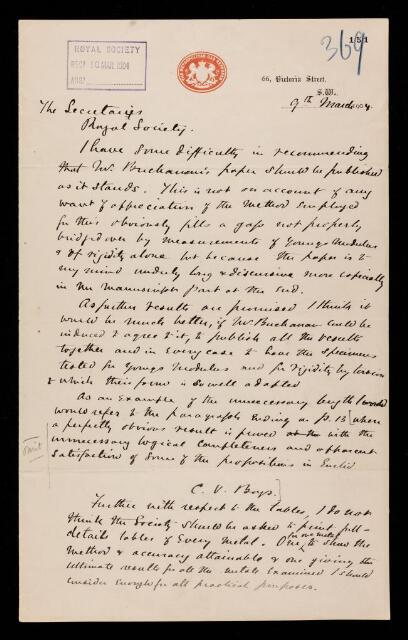 369
151
ROYAL SOCIETY
RECD 10 MAR 1904
ANSD
66, Victoria Street,
S.W.,
9th March 1904.
The Secretaries
Royal Society.
I have some difficulty in recommending
that Mr. Buchanan's paper should be published
as it stands. This is not on account of any
want of appreciation of the method employed
for this obviously fills a gap not properly
bridged over by measurements of Youngs Modulus
& of rigidity alone but because the paper is to
my mind unduly long & discursive more especially
in the manuscript part at the end.
As further results are promised I think it
would be much better, if Mr Buchanan could be
induced to agree to it, to publish all the results
together and in every case to have the specimens
tested for Youngs Modulus and for rigidity by torsion
to which their form is so well adapted
As an example of the unnecessary length I would
would refer to the paragraph ending on p. 13 [where
a perfectly obvious result is proved with the
unnecessary logical completeness and apparent
satisfaction of some of the propositions in Euclid.
omit
C. V. Boys.]
Further with respect to the tables, I do not
think the Society should be asked to print full
details tables of every metal. One, for one metal, to show the
method & accuracy attainable & one giving the
ultimate results for all the metals examined I should
consider enough for all practical purposes.